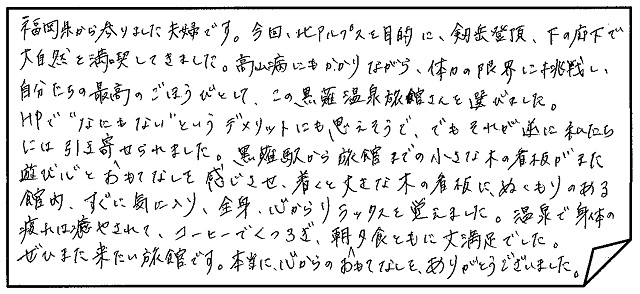 福岡県から参りました夫婦です。今回、北アルプスを目的に、剱岳登頂、下の廊下で
大自然を満喫してきました。高山病にもかかりながら、体力の限界に挑戦し、
自分たちの最高のごほうびとして、この黒薙温泉旅館さんを選びました。
HPで"なにもない"というデメリットにも思えそうで、でもそれが逆に私たち
には引き寄せられました。黒薙駅から旅館までの小さな木の看板がまた
遊び心とおもてなしを感じさせ、着くと大きな木の看板に、ぬくもりのある
館内、すぐに気に入り、全身、心からリラックスを覚えました。温泉で身体の
疲れは癒やされて、コーヒーでくつろぎ、朝夕食ともに大満足でした。
ぜひまた来たい旅館です。本当に、心からのおもてなしを、ありがとうございました。